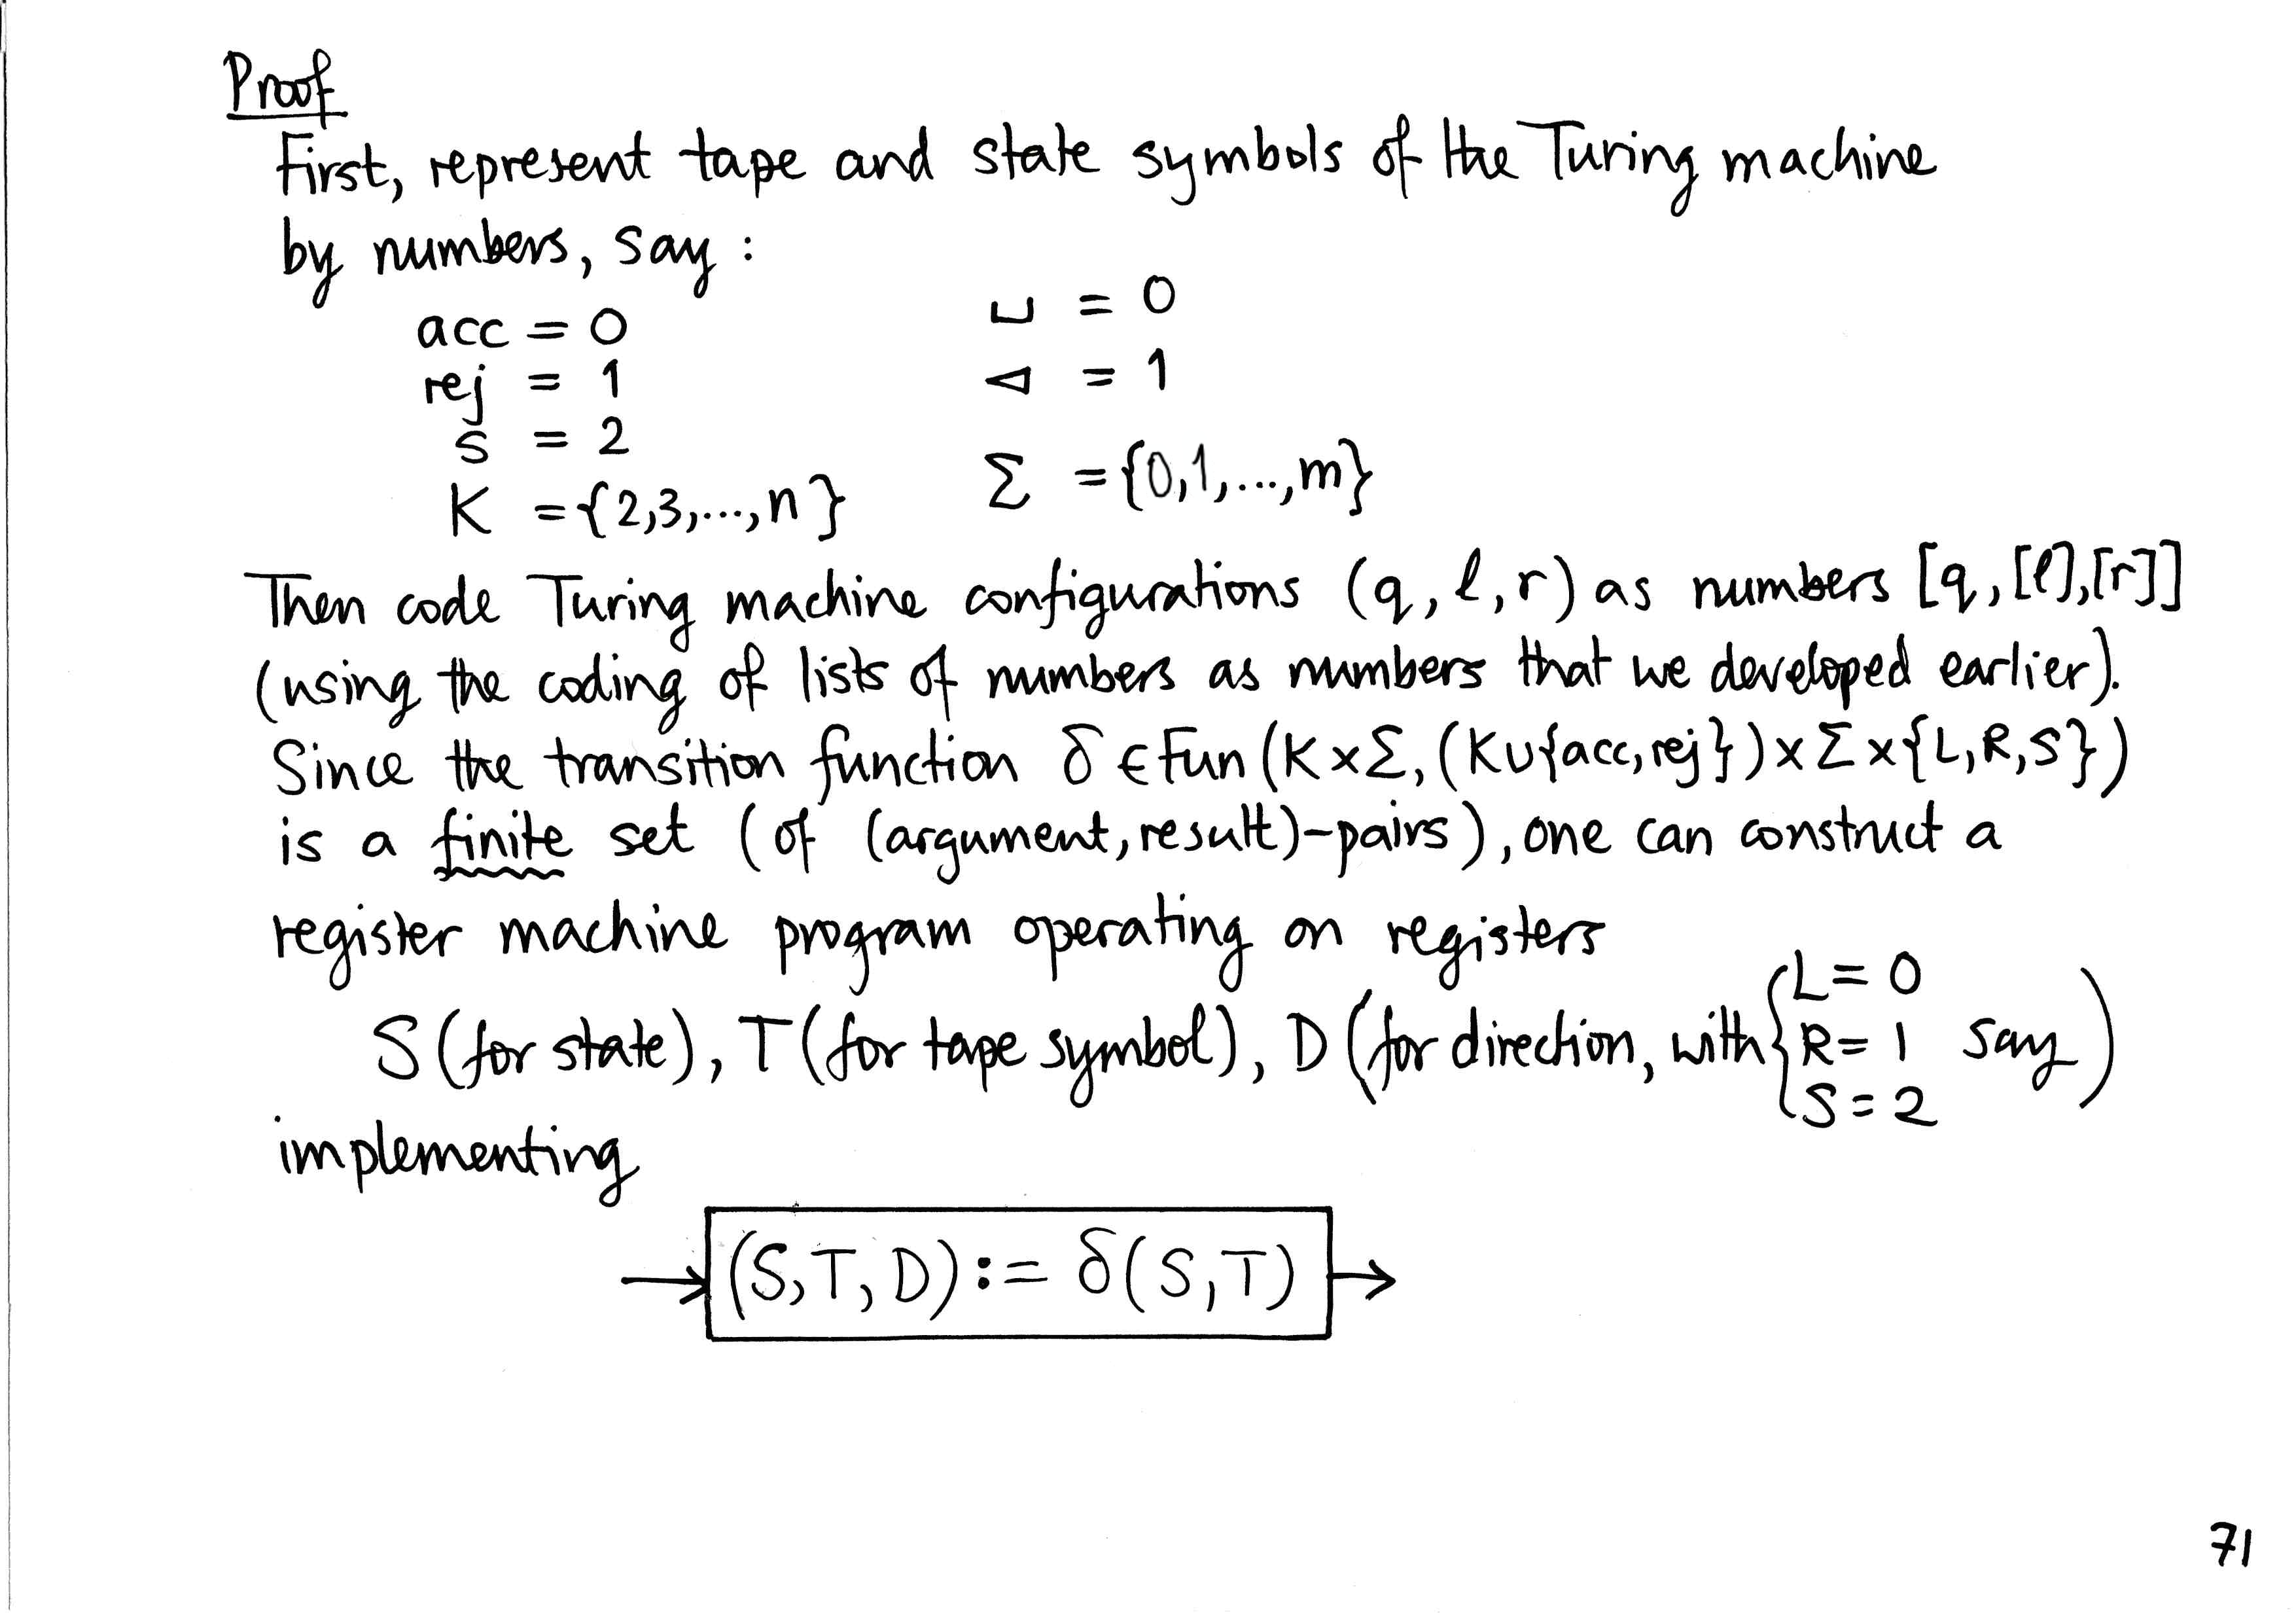 Proof
First, represent tape and state symbols of the Turing machine
by numbers, say :
acc = 0
rej = 1
s = 2
K = {2,3,...,n}
⊔ = 0
⊲ = 1
Σ = {0,1,...,m}
Then code Turing machine configurations (q, ℓ, r) as numbers [q, [ℓ], [r]]
(using the coding of lists of numbers as numbers that we developed earlier).
Since the transition function δ ∈ Fun (K × Σ, (K ∪ {acc, rej}) × Σ × {L, R, S})
is a finite set (of (argument, result)-pairs), one can construct a
register machine program operating on registers
S (for state), T (for tape symbol), D (for direction, with { L = 0 R = 1 S = 2 say )
implementing
(S, T, D) := δ(S, T)
71